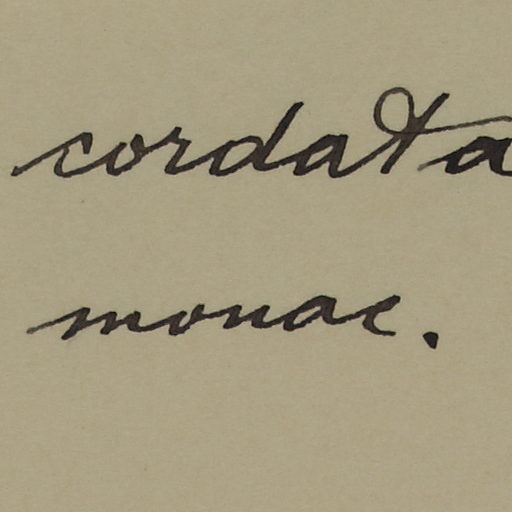 cordata
monac.